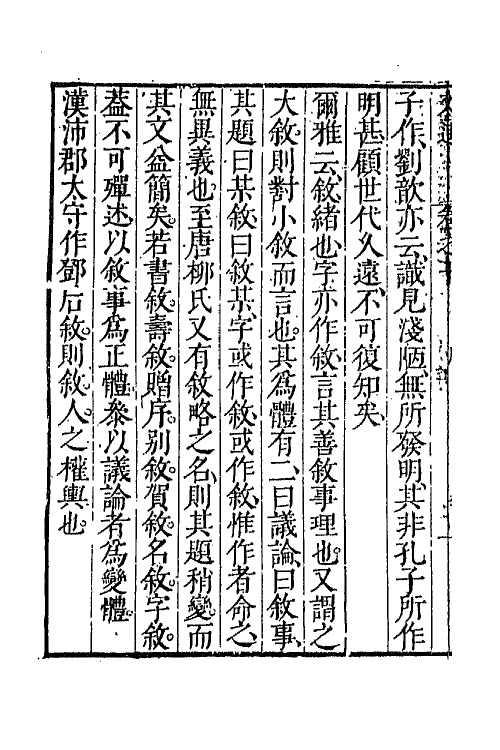 子作、劉歆亦云、識見淺陋、無所發明、其非孔子所作
明甚、顧世代久遠、不可復知矣、
爾雅云、敘緒也、字亦作敘、言其善敘事理也、又謂之
大敘、則對小敘而言也、其爲體有二、曰議論、曰敘事、
其題曰某敘、曰敘某、字或作敘、或作敘、惟作者命之、
無異義也、至唐柳氏又有敘略之名、則其題稍變、而
其文益簡矣、若書敘。壽敘。贈序。別敘。賀敘。名敘。字敘。
葢不可殫述、以敘事爲正體、叅以議論者爲變體。
漢沛郡太守作鄧后敘、則敘人之權輿也